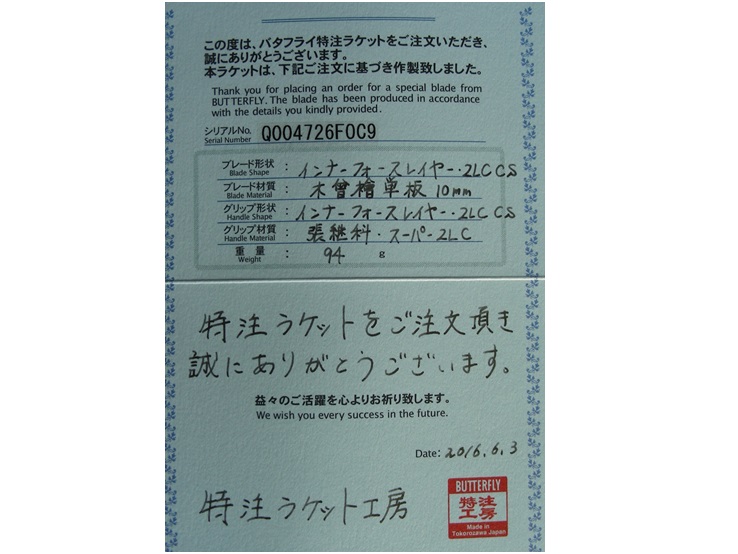 この度は、バタフライ特注ラケットをご注文いただき、
誠にありがとうございます。
本ラケットは、下記ご注文に基づき作製致しました。
Thank you for placing an order for a special blade from
BUTTERFLY. The blade has been produced in accordance
with the details you kindly provided.
シリアルNo.
Serial Number
Q004726F0C9
ブレード形状
Blade Shape
: インナーフォースレイヤー・2LC CS
ブレード材質
Blade Material
: 木曾檜単板 10mm
グリップ形状
Handle Shape
: インナーフォースレイヤー・2LC CS
グリップ材質
Handle Material
: 張継科・スーパー2LC
重量
Weight
: 94 g
特注ラケットをご注文頂き
誠にありがとうございます。
益々のご活躍を心よりお祈り致します。
We wish you every success in the future.
Date: 2016.6.3
特注ラケット工房
BUTTERFLY
特注
工房
Made in
Tokorozawa Japan